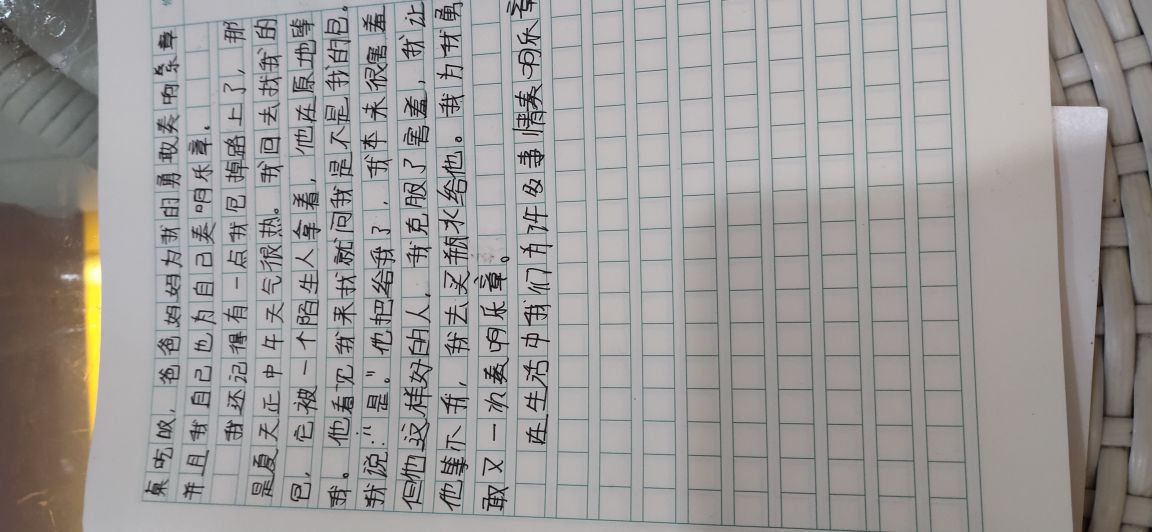 桌吃饭，爸爸妈妈为我的勇敢奏响乐章
并且我自己也为自己奏响乐章。
我还记得有一点我包掉路上了，那
是夏天正中午天气很热。我回去找我的
包，它被一个陌生人拿着，他在原地等
我。他看见我来我就问我是不是我的包。
我说：“是。”他把给我了，我本来很害羞
但他这样好的人，我克服了害羞，我让
他等下我，我去买瓶水给他。我为我勇
敢又一次奏响乐章。
在生活中我们为许多事情奏响乐章